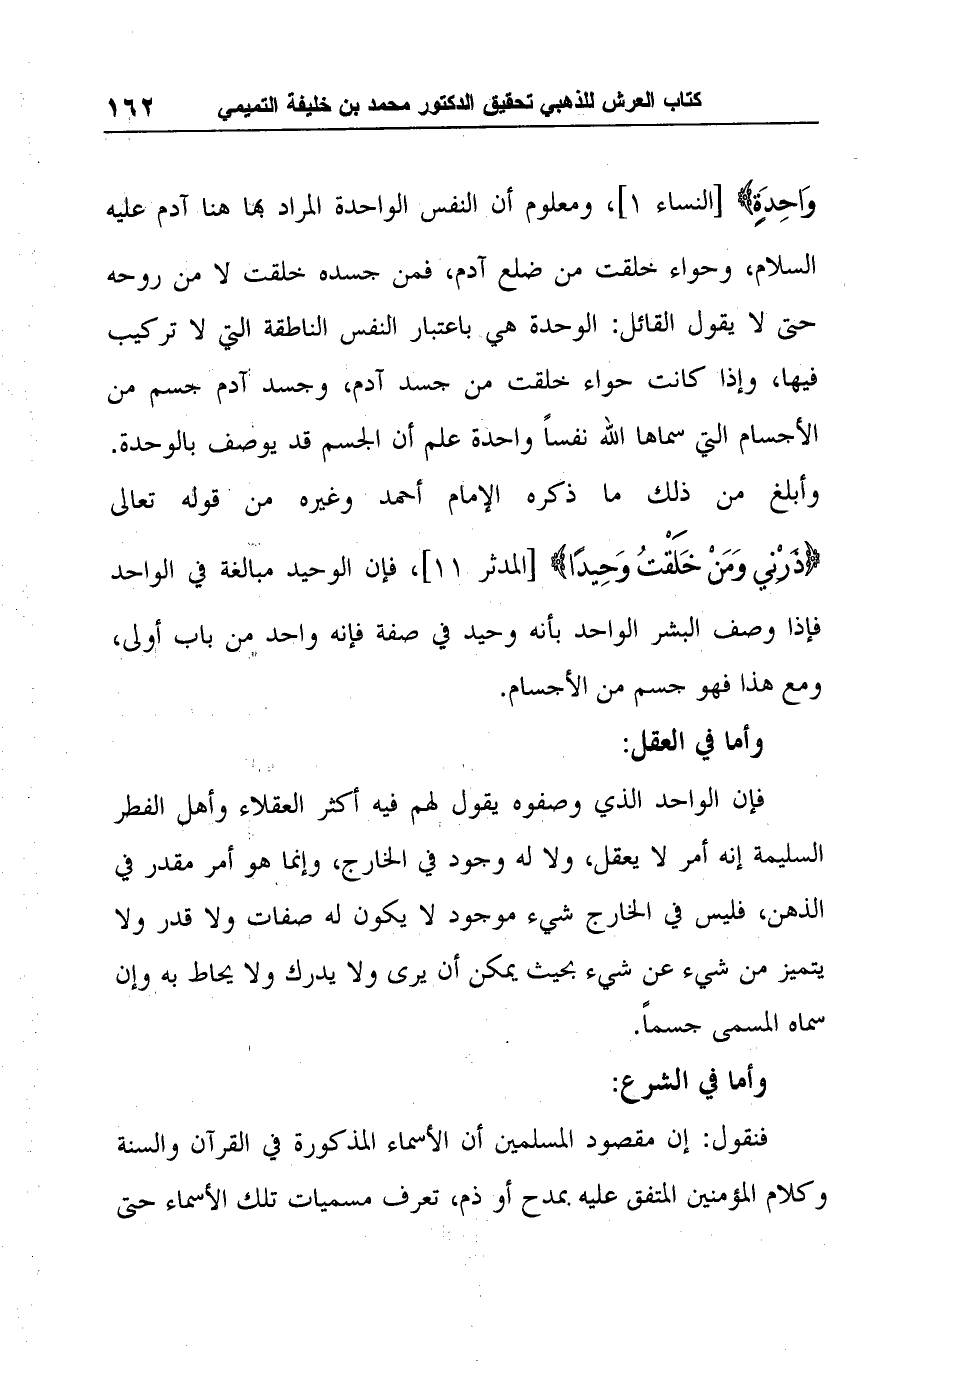 كتاب العرش للذهبي تحقيق الدكتور محمد بن خليفة التميمي ١٦٢
وَاحِدَةٍ﴾ [النساء ١]، ومعلوم أن النفس الواحدة المراد بها هنا آدم عليه
السلام، وحواء خلقت من ضلع آدم، فمن جسده خلقت لا من روحه
حتى لا يقول القائل: الوحدة هي باعتبار النفس الناطقة التي لا تركيب
فيها، وإذا كانت حواء خلقت من جسد آدم، وجسد آدم جسم من
الأجسام التي سماها الله نفساً واحدة علم أن الجسم قد يوصف بالوحدة.
وأبلغ من ذلك ما ذكره الإمام أحمد وغيره من قوله تعالى
﴿ذَرْنِي وَمَنْ خَلَقْتُ وَحِيدًا﴾ [المدثر ١١]، فإن الوحيد مبالغة في الواحد
فإذا وصف البشر الواحد بأنه وحيد في صفة فإنه واحد من باب أولى،
ومع هذا فهو جسم من الأجسام.
وأما في العقل:
فإن الواحد الذي وصفوه يقول لهم فيه أكثر العقلاء وأهل الفطر
السليمة إنه أمر لا يعقل، ولا له وجود في الخارج، وإنما هو أمر مقدر في
الذهن، فليس في الخارج شيء موجود لا يكون له صفات ولا قدر ولا
يتميز من شيء عن شيء بحيث يمكن أن يرى ولا يدرك ولا يحاط به وإن
سماه المسمى جسماً.
وأما في الشرع:
فنقول: إن مقصود المسلمين أن الأسماء المذكورة في القرآن والسنة
وكلام المؤمنين المتفق عليه بمدح أو ذم، تعرف مسميات تلك الأسماء حتى